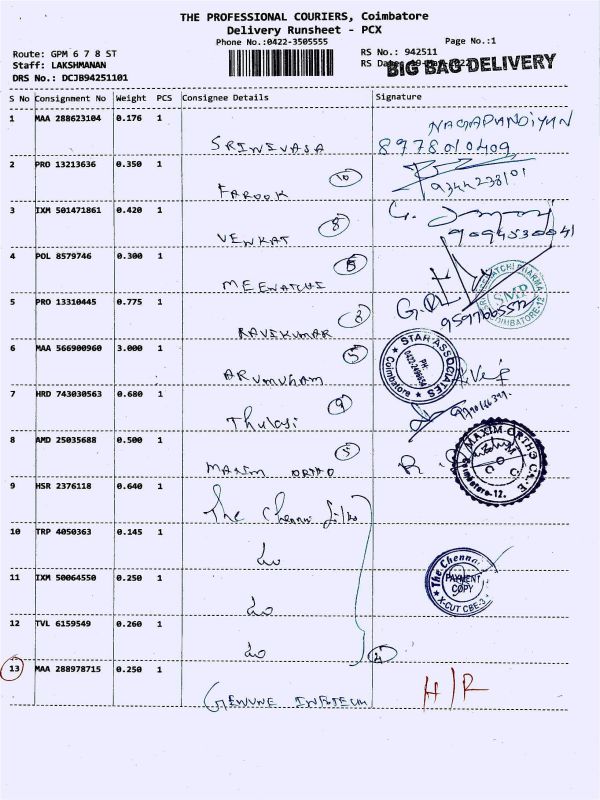 THE PROFESSIONAL COURIERS, Coimbatore
Delivery Runsheet - PCX
Phone No.:0422-3505555
Page No.:1
Route: GPM 6 7 8 ST
RS No.: 942511
Staff: LAKSHMANAN
RS Date
BIG BAG DELIVERY
DRS No.: DCJB94251101
S No Consignment No Weight PCS Consignee Details Signature
1 MAA 288623104 0.176 1
SRINIVASA
NAGAPANDIYAN
8978010409
2 PRO 13213636 0.350 1
FAROOK
10
9344238101
3 IXM 501471861 0.420 1
VENKAT
8
G.
9094530041
4 POL 8579746 0.300 1
MEENATCHI
6
5 PRO 13310445 0.775 1
RAVIKUMAR
3
SMP
COIMBATORE-12
6 MAA 566900960 3.000 1
ARUMUHAM
5
STAR ASSOCIATES
PH:
Coimbatore
7 HRD 743030563 0.680 1
Thulasi
9
8 AMD 25035688 0.500 1
MAXIM ORTHO
5
MAXIM ORTHO
Coimbatore-12.
9 HSR 2376118 0.640 1
The Chennai Silks
10 TRP 4050363 0.145 1
do
11 IXM 50064550 0.250 1
do
The Chennai
PAYMENT
COPY
X-CUT CBE-3
12 TVL 6159549 0.260 1
do
4
13 MAA 288978715 0.250 1
GENUNE INFOTECH
H/R